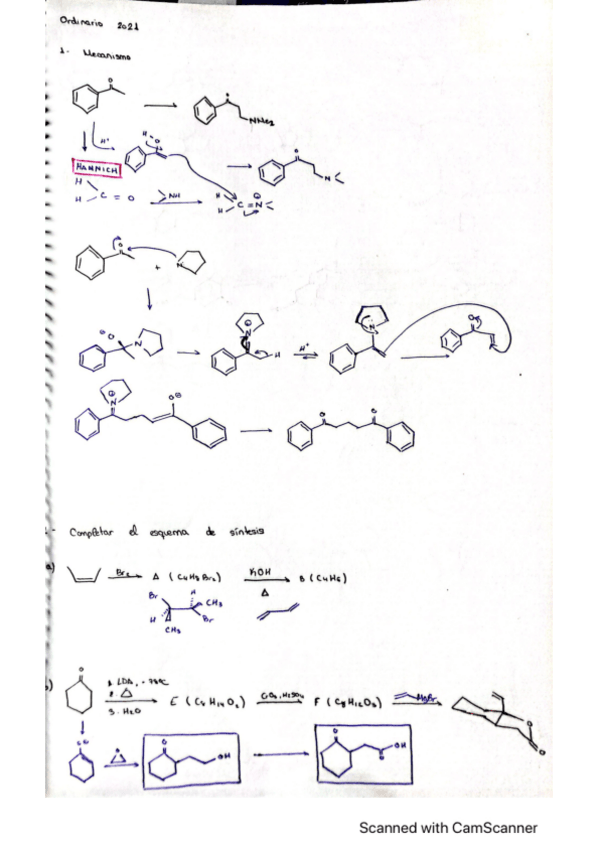 Ordinario 2021
1- Mecanismo
O
O
NMe2
H+
H O
O
N
MANNICH
H
H C = O
NH
H
H C = N
⊕
O
+ N
⊖O
N
⊕
N
H
H+
N
O
⊕
N
O⊖
O O
- Completar el esquema de síntesis
a) Br2 A (C4H8Br2) KOH Δ B (C4H6)
Br
H
H
CH3
Br
CH3
b) O
1. LDA, -78ºC
2.
3. H2O
E (C8H14O2) CrO3, H2SO4 F (C8H12O3) MgBr
O
O
O
O
OH
O
O
OH
Scanned with CamScanner